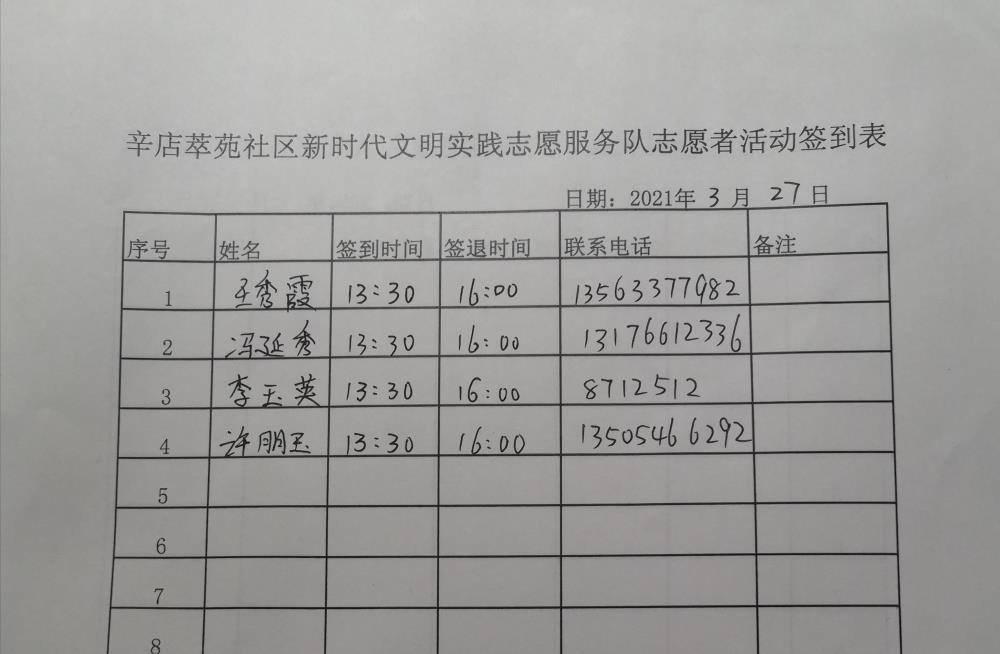 辛店萃苑社区新时代文明实践志愿服务队志愿者活动签到表
日期：2021年 3 月 27 日
序号 姓名 签到时间 签退时间 联系电话 备注
1 王秀霞 13:30 16:00 13563377982
2 冯延秀 13:30 16:00 13176612336
3 李玉英 13:30 16:00 8712512
4 许朋玉 13:30 16:00 13505466292
5
6
7
8